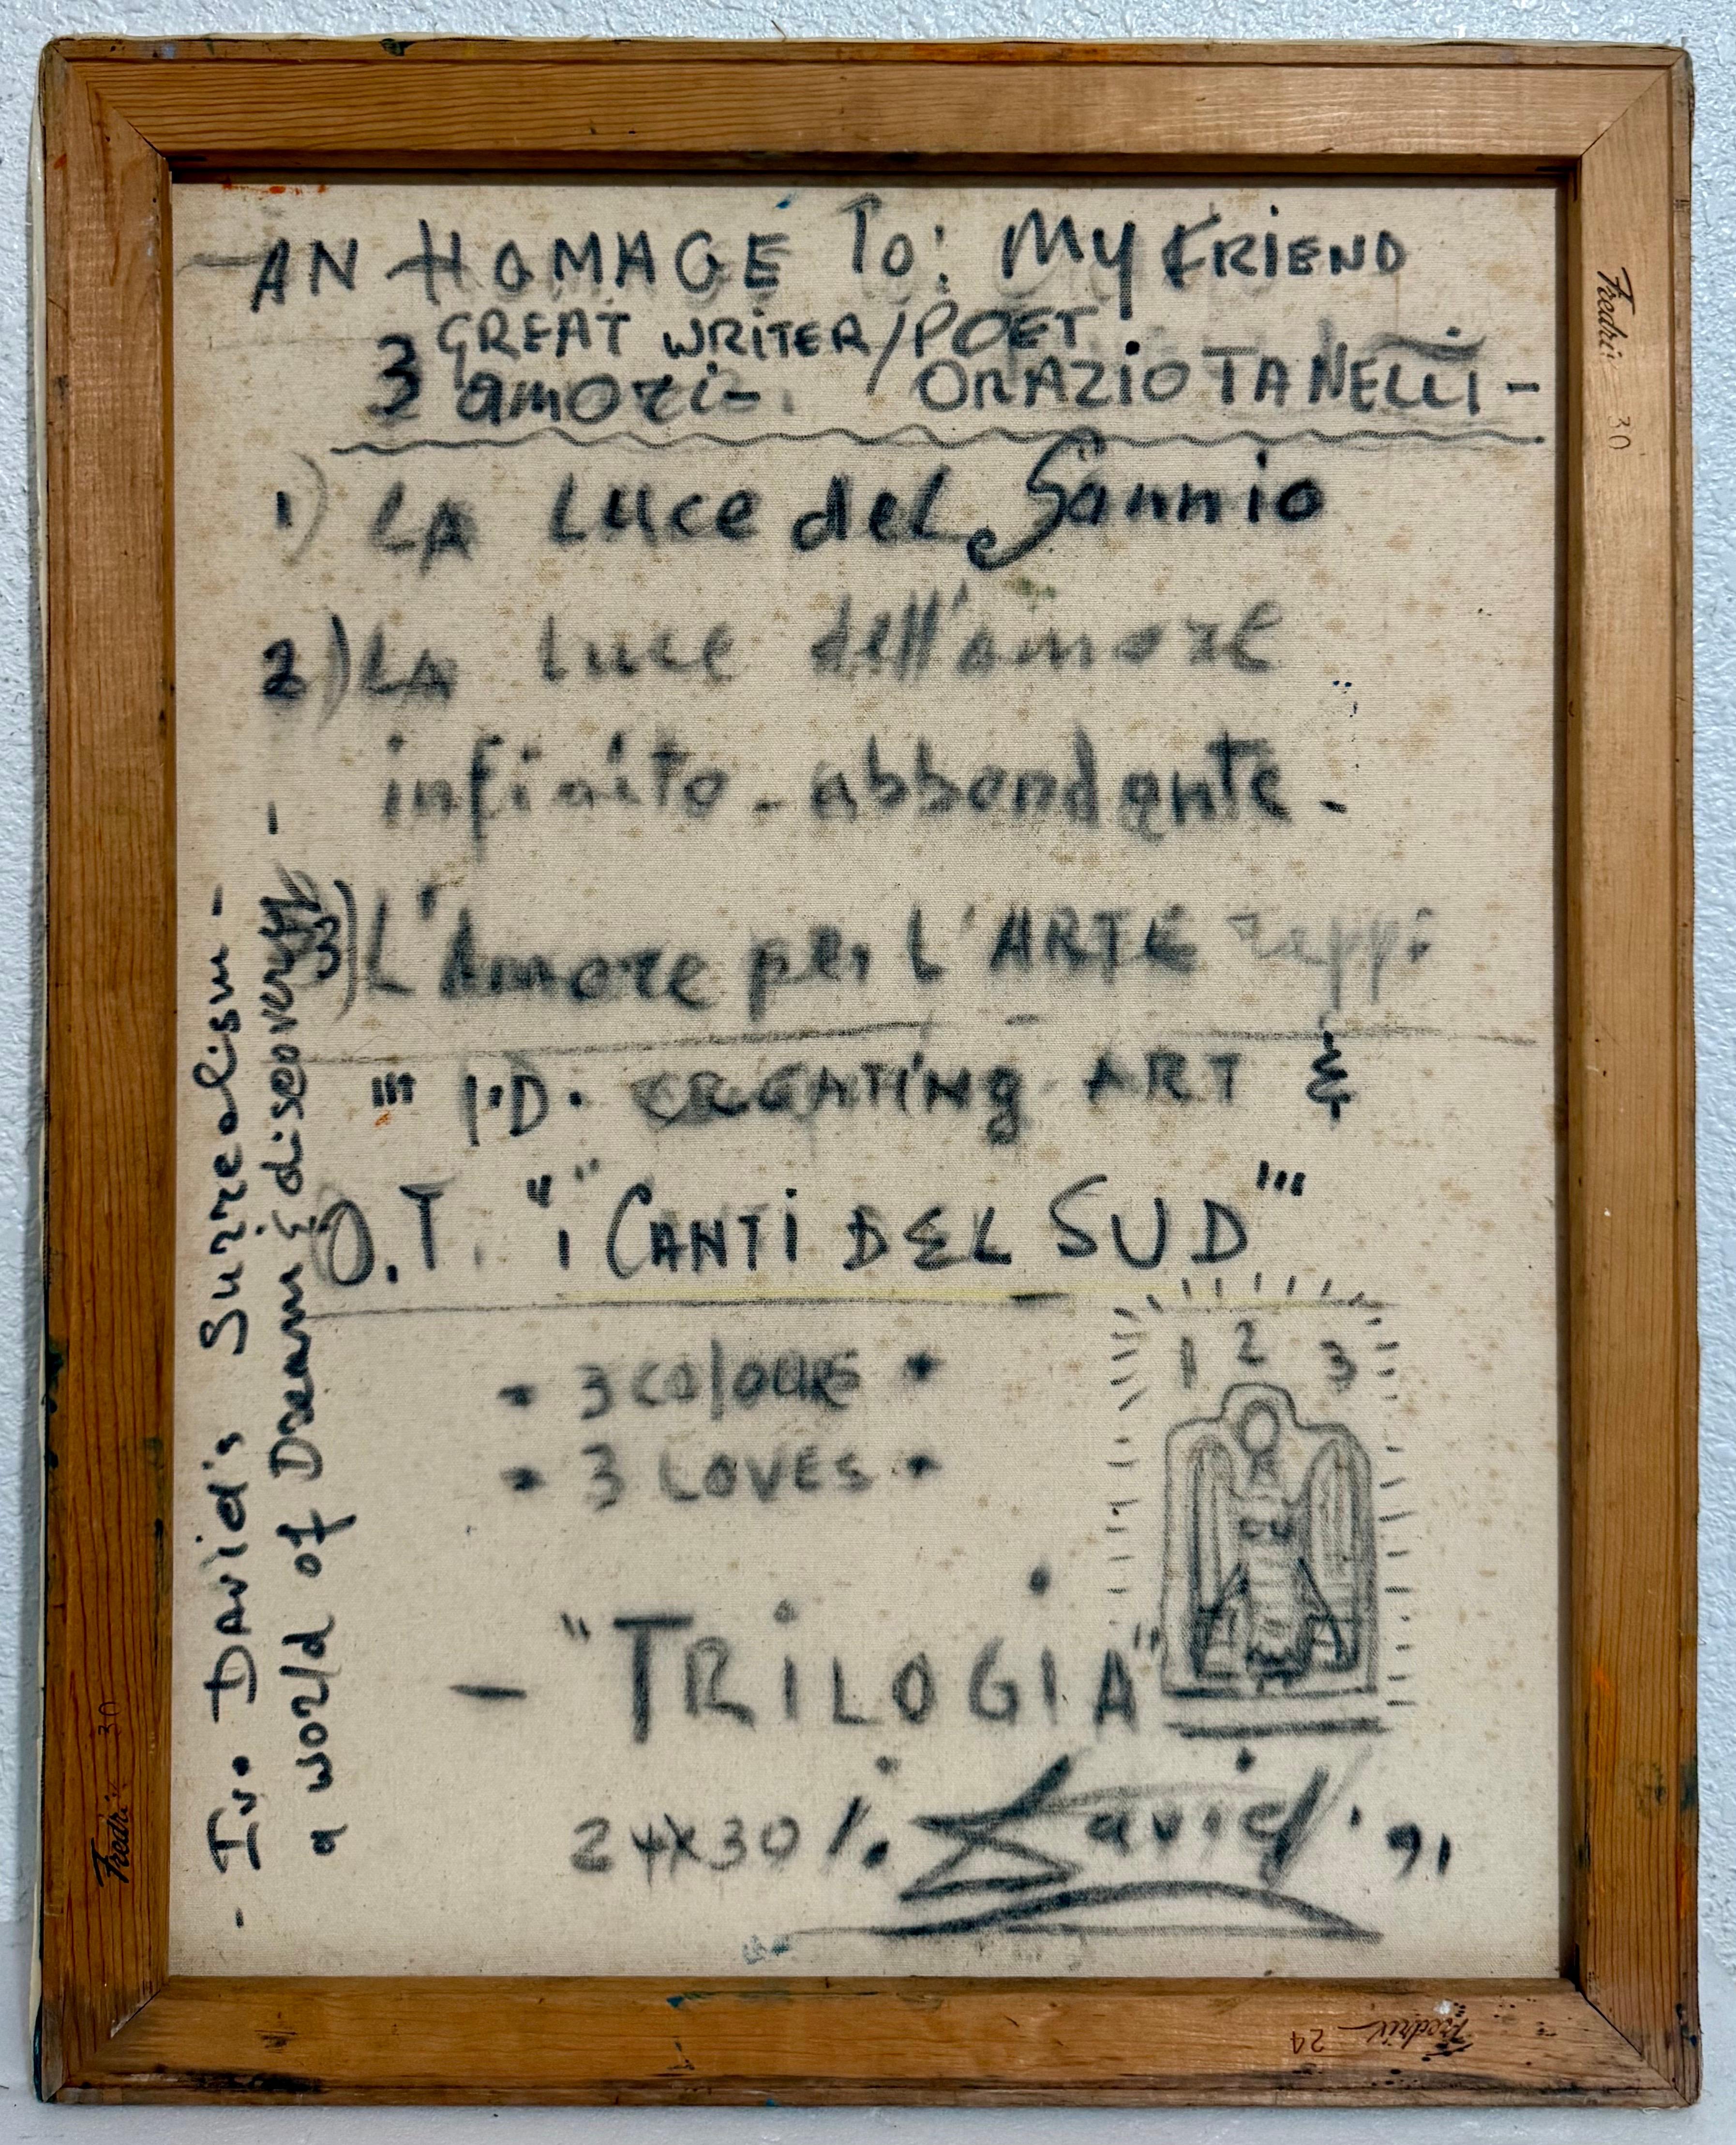 AN HOMAGE To: My FRIEND
GREAT WRITER/POET
3 amori- ORAZIO TANELLI -
1) LA Luce del Sannio
2) LA luce dell'amore
infinito - abbondante -
3) L'Amore per L'ARTE
"' I.D. CREATING ART &
O.T. "i CANTI DEL SUD"'
• 3 COLOURS •
• 3 LOVES •
1 2 3
- "TRiLOGiA"
24x30 David '91
- Ivo DAvid's Surrealism -
a world of Dream & discovery -
Fredrix 30
Fredrix 30
Fredrix 24